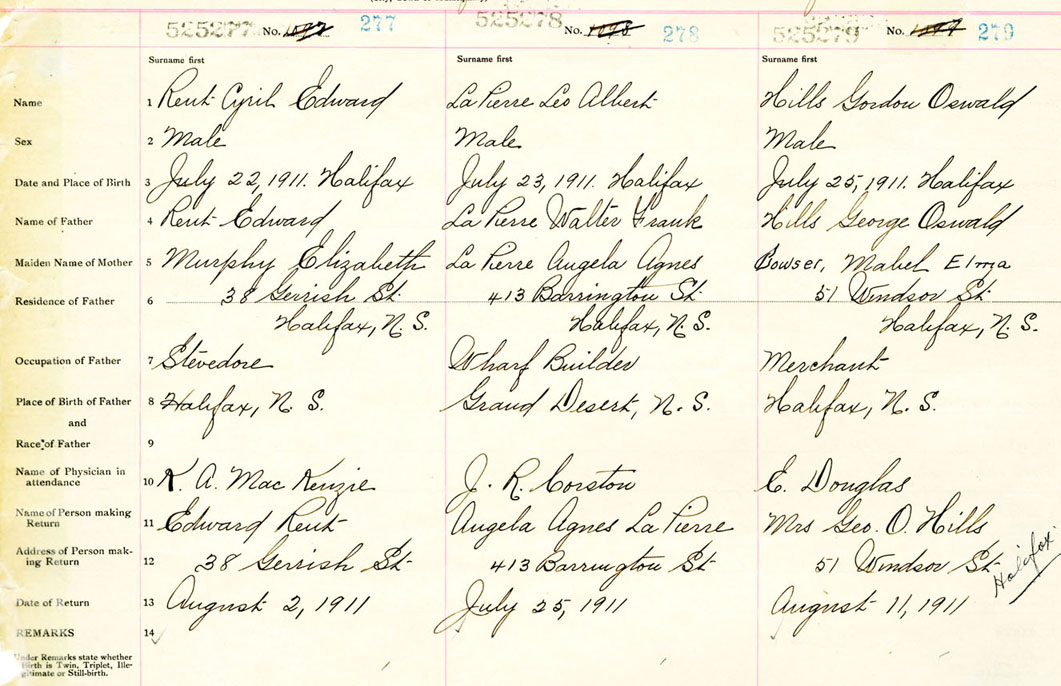 525277 No. 1097 277 525278 No. 1098 278 525279 No. 1099 279
Surname first Surname first Surname first
Name 1 Rent Cyril Edward La Pierre Leo Albert Hills Gordon Oswald
Sex 2 Male Male Male
Date and Place of Birth 3 July 22, 1911. Halifax July 23, 1911. Halifax July 25, 1911. Halifax
Name of Father 4 Rent Edward La Pierre Walter Frank Hills George Oswald
Maiden Name of Mother 5 Murphy Elizabeth La Pierre Angela Agnes Bowser, Mabel Elma
Residence of Father 6 38 Gerrish St. 413 Barrington St. 51 Windsor St.
Halifax, N.S. Halifax, N.S. Halifax, N.S.
Occupation of Father 7 Stevedore Wharf Builder Merchant
Place of Birth of Father 8 Halifax, N.S. Grand Desert, N.S. Halifax, N.S.
and
Race of Father 9
Name of Physician in
attendance 10 K. A. Mac Kenzie J. R. Corston E. Douglas
Name of Person making
Return 11 Edward Rent Angela Agnes La Pierre Mrs Geo. O. Hills
Address of Person mak-
ing Return 12 38 Gerrish St. 413 Barrington St. 51 Windsor St. Halifax
Date of Return 13 August 2, 1911 July 25, 1911 August 11, 1911
REMARKS 14
Under Remarks state whether
Birth is Twin, Triplet, Ille-
gitimate or Still-birth.